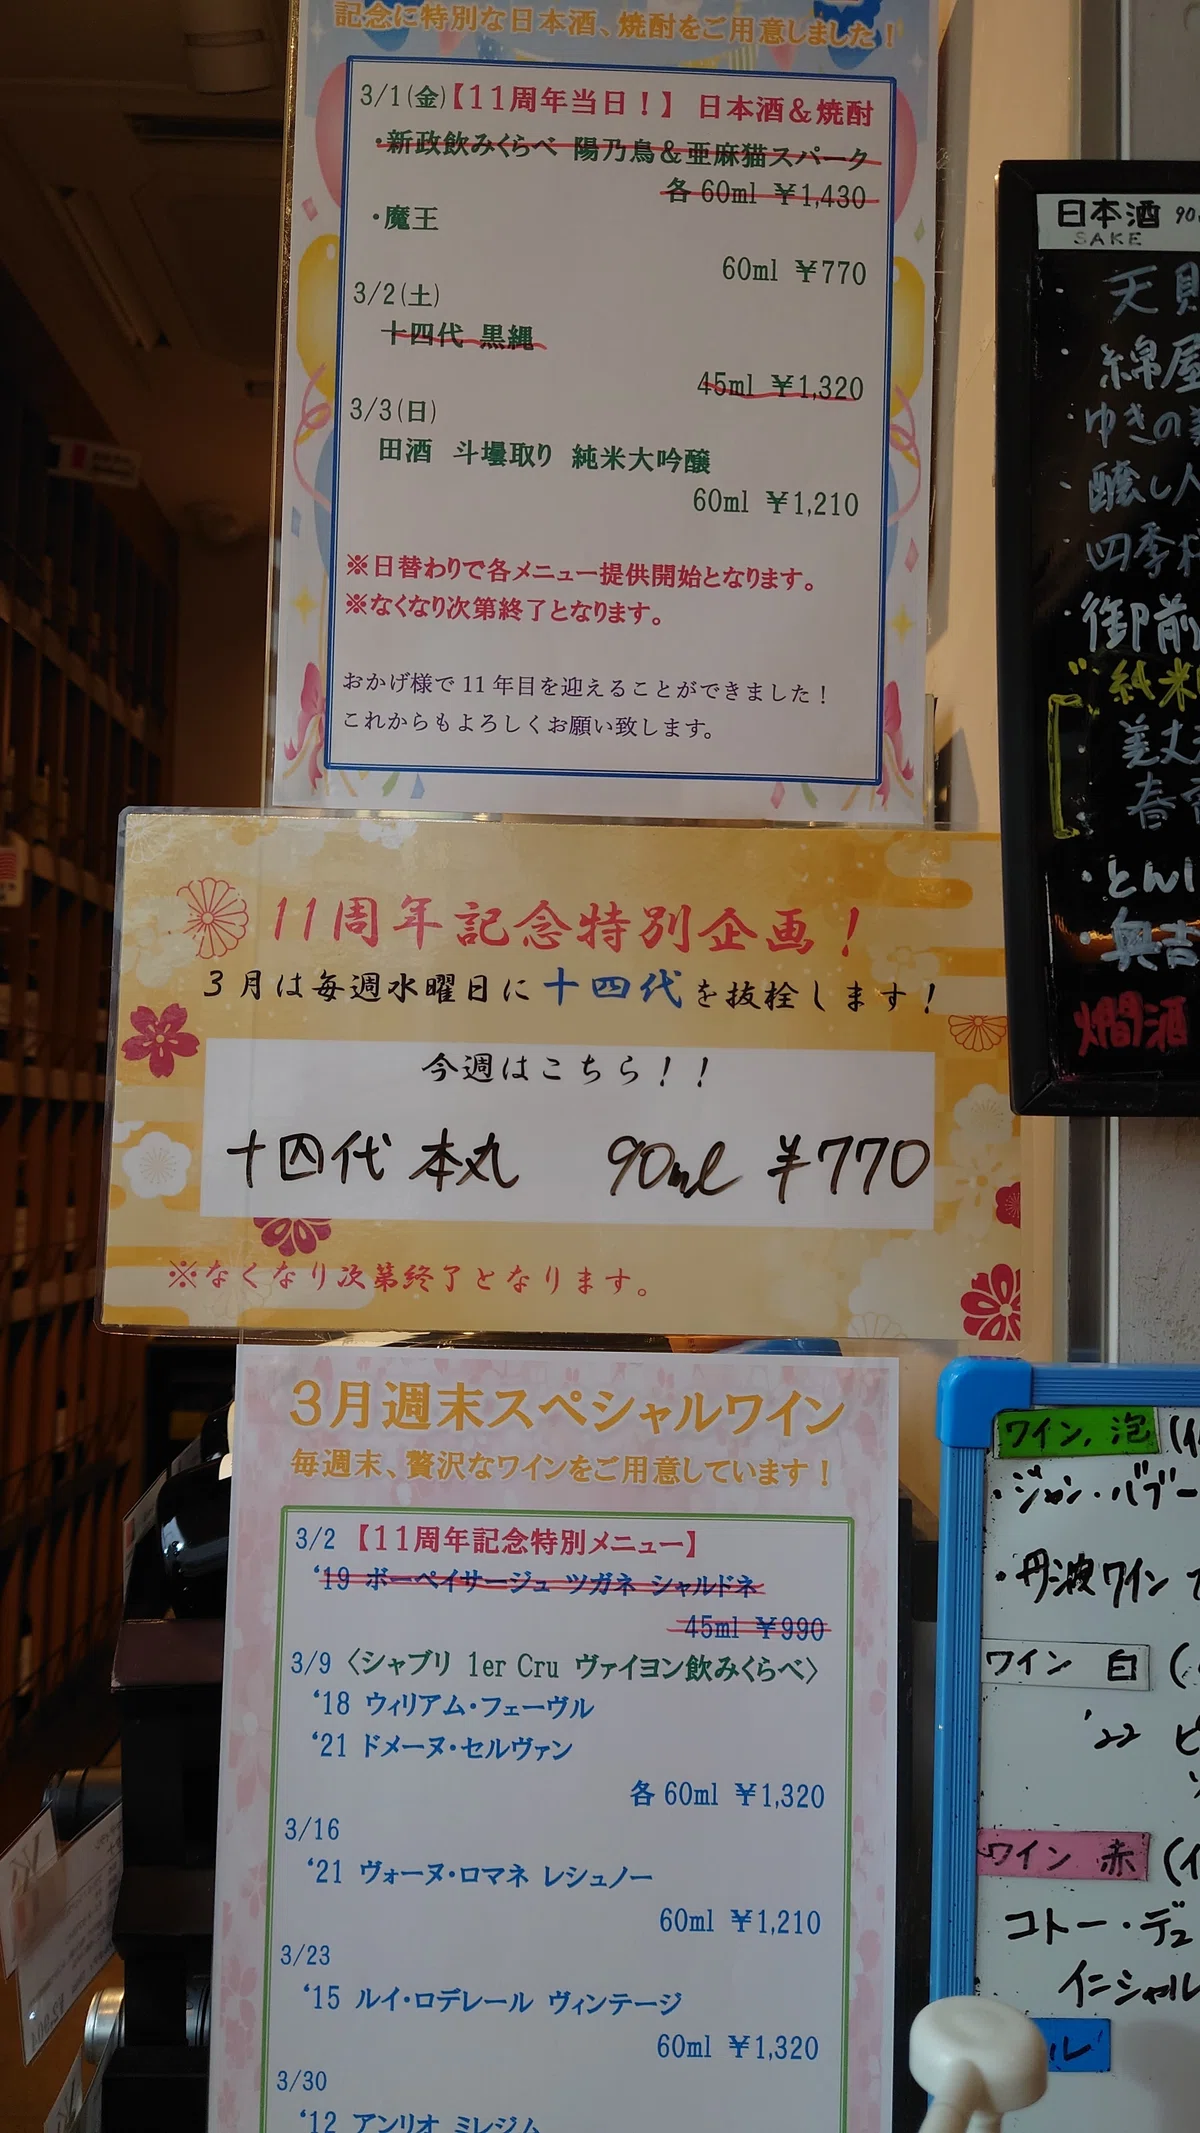 記念に特別な日本酒、焼酎をご用意しました！
3/1(金)【11周年当日！】 日本酒＆焼酎
・新政飲みくらべ 陽乃鳥＆亜麻猫スパーク
各 60ml ￥1,430
・魔王
60ml ￥770
3/2(土)
十四代 黒縄
45ml ￥1,320
3/3(日)
田酒 斗壜取り 純米大吟醸
60ml ￥1,210
※日替わりで各メニュー提供開始となります。
※なくなり次第終了となります。
おかげ様で 11 年目を迎えることができました！
これからもよろしくお願い致します。
11周年記念特別企画！
3月は毎週水曜日に十四代を抜栓します！
今週はこちら！！
十四代 本丸 90ml ¥770
※なくなり次第終了となります。
3月週末スペシャルワイン
毎週末、贅沢なワインをご用意しています！
3/2 【11周年記念特別メニュー】
‘19 ボーペイサージュ ツガネ シャルドネ
45ml ￥990
3/9 〈シャブリ 1er Cru ヴァイヨン飲みくらべ〉
‘18 ウィリアム・フェーヴル
‘21 ドメーヌ・セルヴァン
各 60ml ￥1,320
3/16
‘21 ヴォーヌ・ロマネ レシュノー
60ml ￥1,210
3/23
‘15 ルイ・ロデレール ヴィンテージ
60ml ￥1,320
3/30
‘12 アンリオ ミレジム
日本酒 90
SAKE
・天
・綿屋
・ゆきの
・醸し人
・四季
・御前
純米
・美丈
・春
・とんし
・奥
燗酒
ワイン、泡
・ジャン・バブー
・丹波ワイン
ワイン 白
'22 ピ
ワイン 赤
コトー・デュ
イニシャル
ル